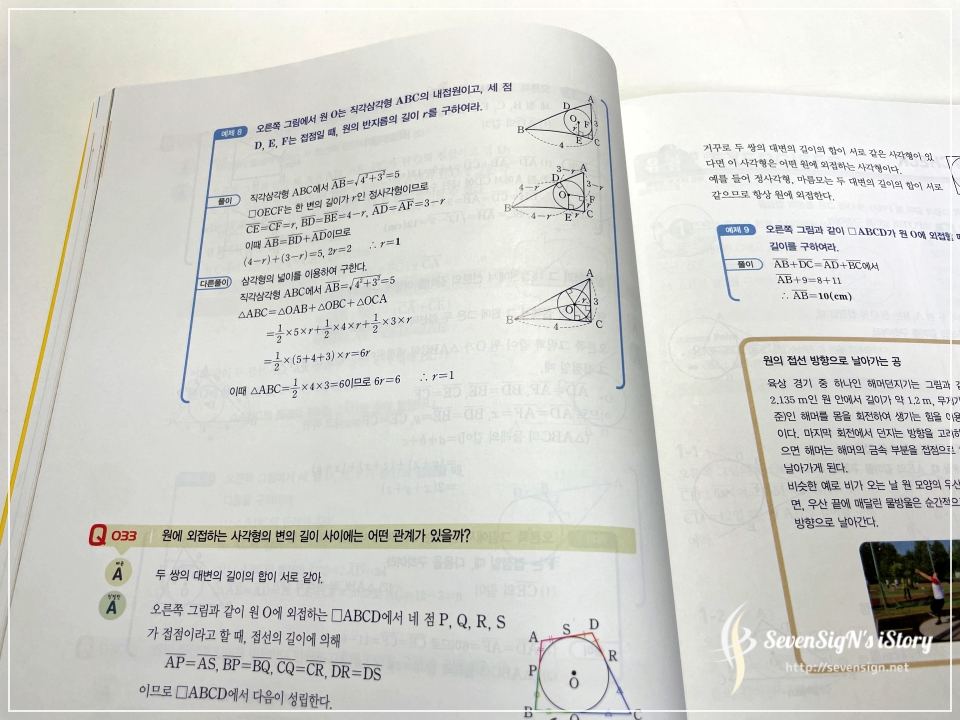 예제 8
오른쪽 그림에서 원 O는 직각삼각형 ABC의 내접원이고, 세 점
D, E, F는 접점일 때, 원의 반지름의 길이 r를 구하여라.
A
D
O
F
3
r
B
E
C
4
풀이
직각삼각형 ABC에서 AB=√4²+3²=5
□OECF는 한 변의 길이가 r인 정사각형이므로
CE=CF=r, BD=BE=4-r, AD=AF=3-r
이때 AB=BD+AD이므로
(4-r)+(3-r)=5, 2r=2 ∴ r=1
3-r
A
4-r
D
3-r
O
F
r
B
4-r
E
r
C
다른풀이
삼각형의 넓이를 이용하여 구한다.
직각삼각형 ABC에서 AB=√4²+3²=5
△ABC=△OAB+△OBC+△OCA
=1/2×5×r+1/2×4×r+1/2×3×r
=1/2×(5+4+3)×r=6r
이때 △ABC=1/2×4×3=6이므로 6r=6 ∴ r=1
A
O
r
3
B
4
C
Q 033 원에 외접하는 사각형의 변의 길이 사이에는 어떤 관계가 있을까?
A
두 쌍의 대변의 길이의 합이 서로 같아.
A
오른쪽 그림과 같이 원 O에 외접하는 □ABCD에서 네 점 P, Q, R, S
가 접점이라고 할 때, 접선의 길이에 의해
AP=AS, BP=BQ, CQ=CR, DR=DS
이므로 □ABCD에서 다음이 성립한다.
A
S
D
P
R
O
B
Q
C
거꾸로 두 쌍의 대변의 길이의 합이 서로 같은 사각형이 있
다면 이 사각형은 어떤 원에 외접하는 사각형이다.
예를 들어 정사각형, 마름모는 두 대변의 길이의 합이 서로
같으므로 항상 원에 외접한다.
예제 9
오른쪽 그림과 같이 □ABCD가 원 O에 외접할
길이를 구하여라.
풀이
AB+DC=AD+BC에서
AB+9=8+11
∴ AB=10(cm)
원의 접선 방향으로 날아가는 공
육상 경기 중 하나인 해머던지기는 그림과
2.135 m인 원 안에서 길이가 약 1.2 m, 무게가
준)인 해머를 몸을 회전하여 생기는 힘을 이용
이다. 마지막 회전에서 던지는 방향을 고려하
으면 해머는 해머의 금속 부분을 접점으로
날아가게 된다.
비슷한 예로 비가 오는 날 원 모양의 우산
면, 우산 끝에 매달린 물방울은 순간적으
방향으로 날아간다.
SevenSigN's iStory
http://sevensign.net